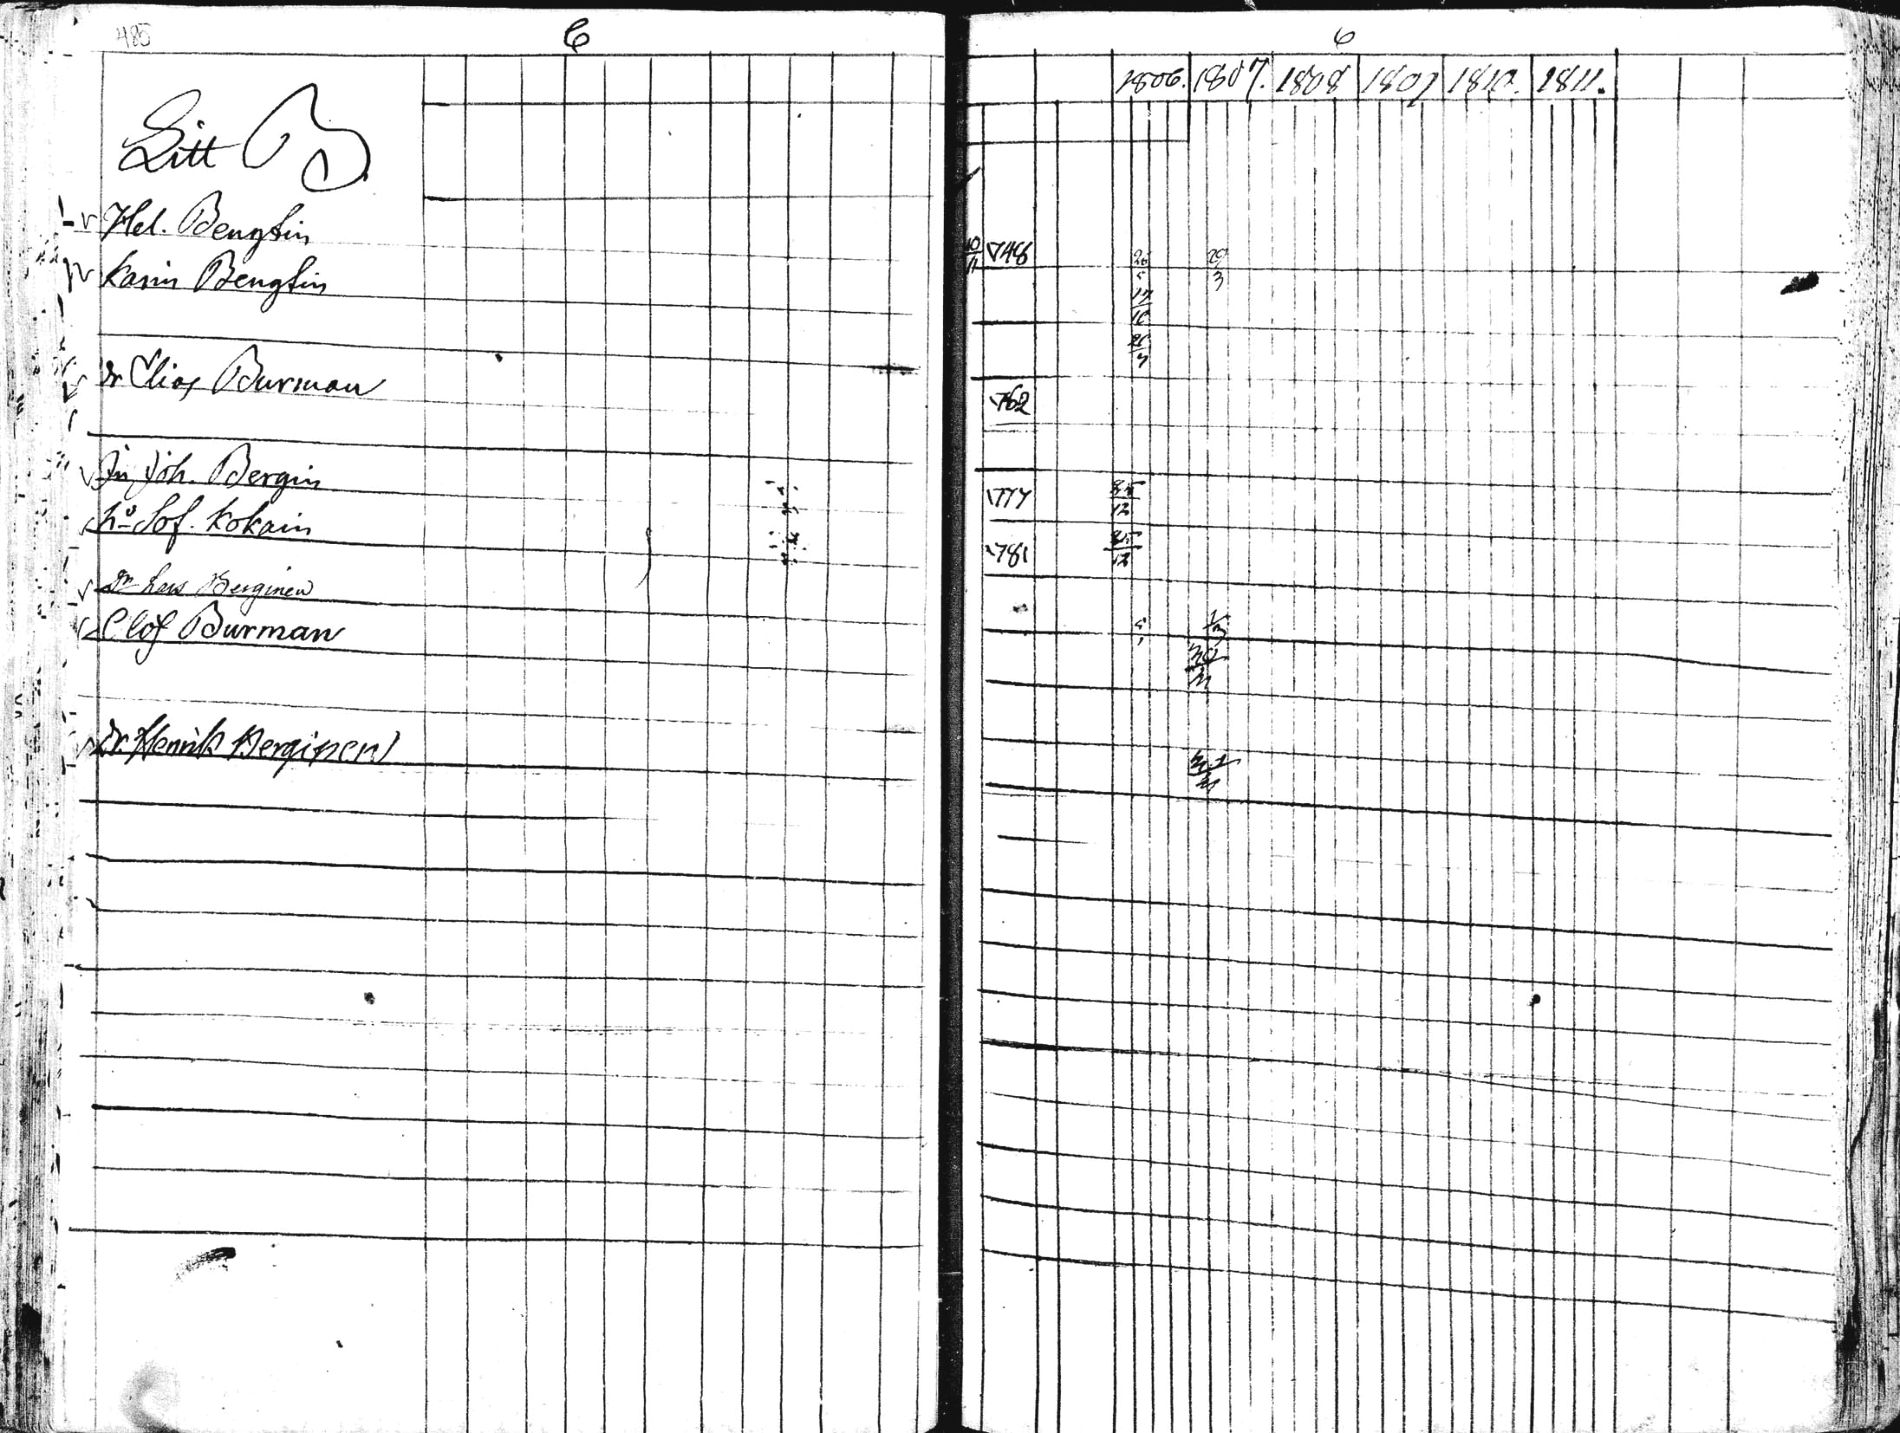 485 6
Litt B
Hel. Bengtin
Karin Bengtin
Dr Elias Burman
Jn Joh. Bergin
ho Sof. Kokain
Dr Lars Berginen
Olof Burman
Dr Henrik Berginen
6
1806. 1807. 1808 1809 1810. 1811.
10/11 1748 29/3
17/10
1762
1777 25/12
1781 25/12
1/3